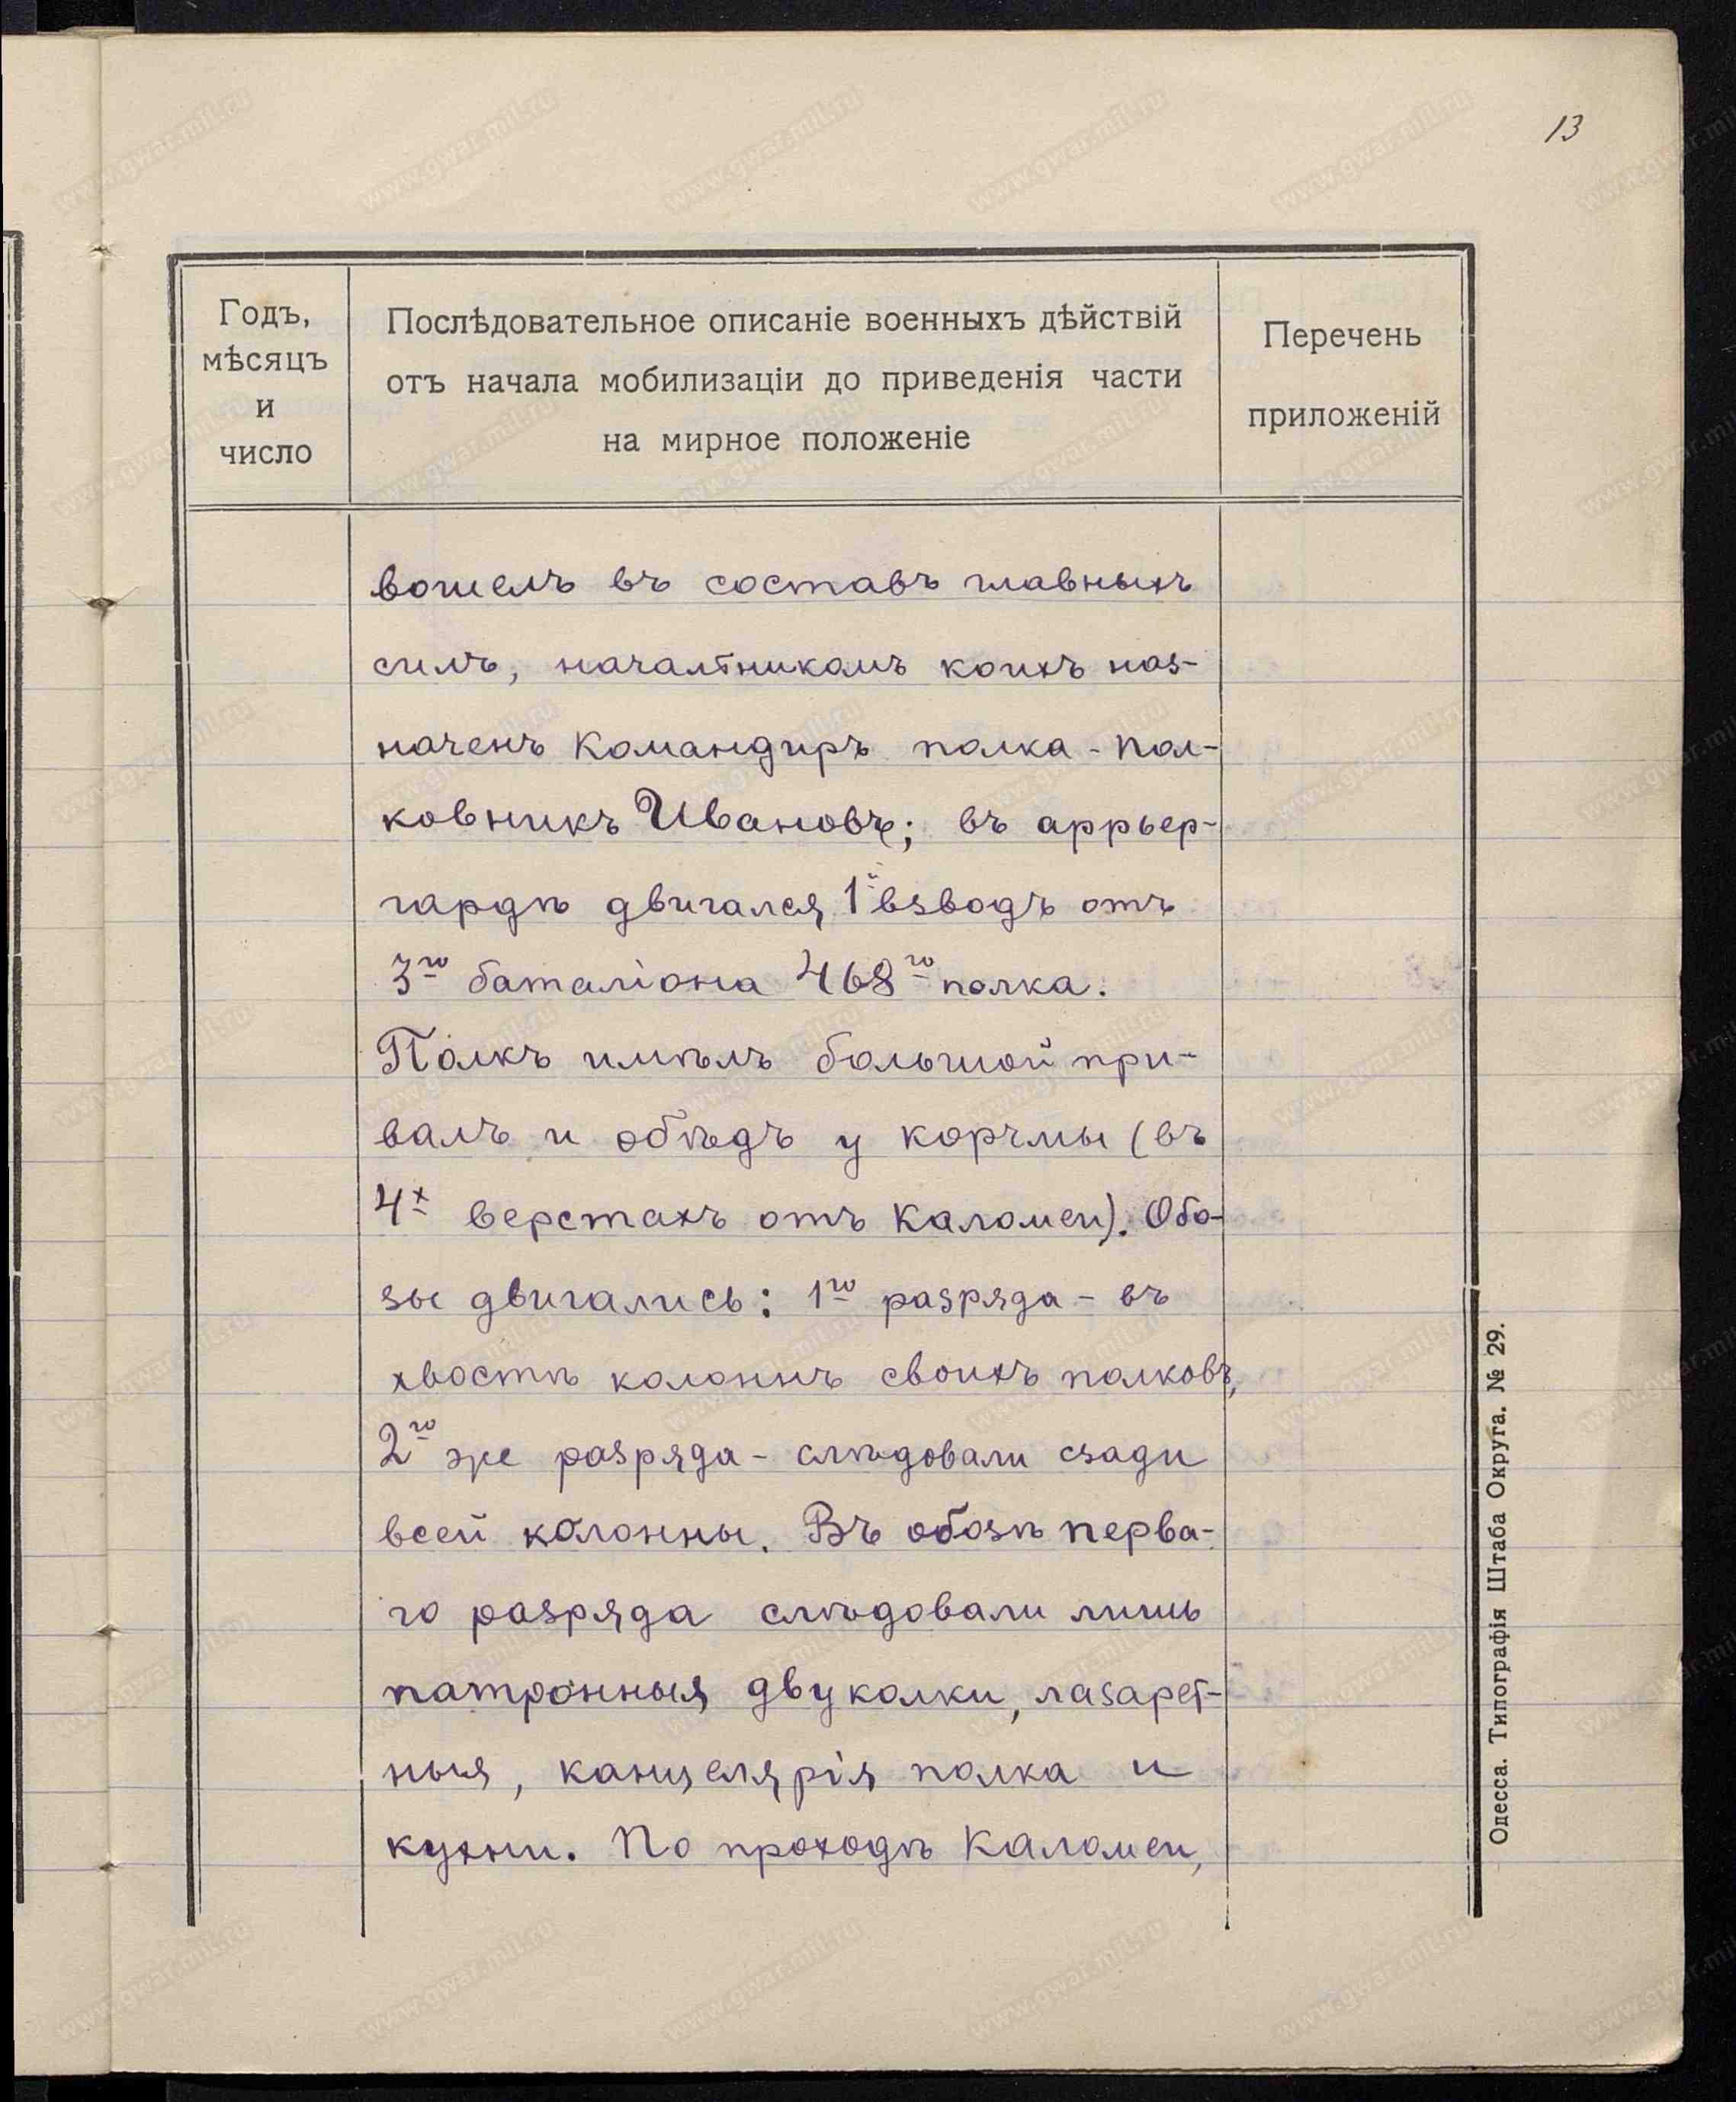 13
Годъ,
мѣсяцъ
и
число
Послѣдовательное описаніе военныхъ дѣйствій
отъ начала мобилизаціи до приведенія части
на мирное положеніе
Перечень
приложеній
вошелъ въ составъ главныхъ
силъ, начальникомъ коихъ наз-
наченъ Командиръ полка - Пол-
ковникъ Ивановъ; въ аррьер-
гардѣ двигался 1й взводъ отъ
3го баталіона 468го полка.
Полкъ имѣлъ большой при-
валъ и обѣдъ у корчмы (въ
4х верстахъ отъ Каломеи). Обо-
зы двигались: 1го разряда - въ
хвостѣ колоннъ своихъ полковъ,
2го же разряда - слѣдовали сзади
всей колонны. Въ обозѣ перва-
го разряда слѣдовали лишь
патронныя двуколки, лазарет-
ныя, канцелярія полка и
кухни. По проходѣ Каломеи,
Одесса. Типографія Штаба Округа. № 29.
www.gwar.mil.ru